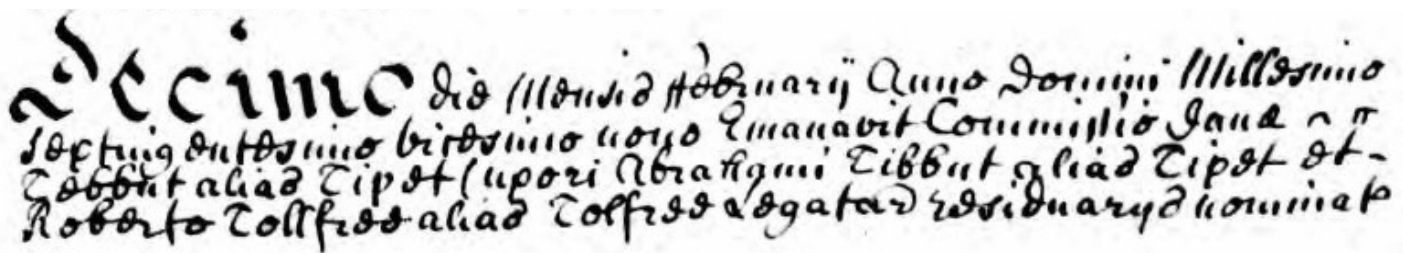 Decimo die Mensis Februarij Anno Domini Millesimo
Septuigentesimo vicesimo nono Emanavit Commissio Janæ
Tebbut alias Tipet (uxori Abrahami Tibbut alias Tipet et
Roberto Tollfree alias Tolfree Legatar residuarijs nominat